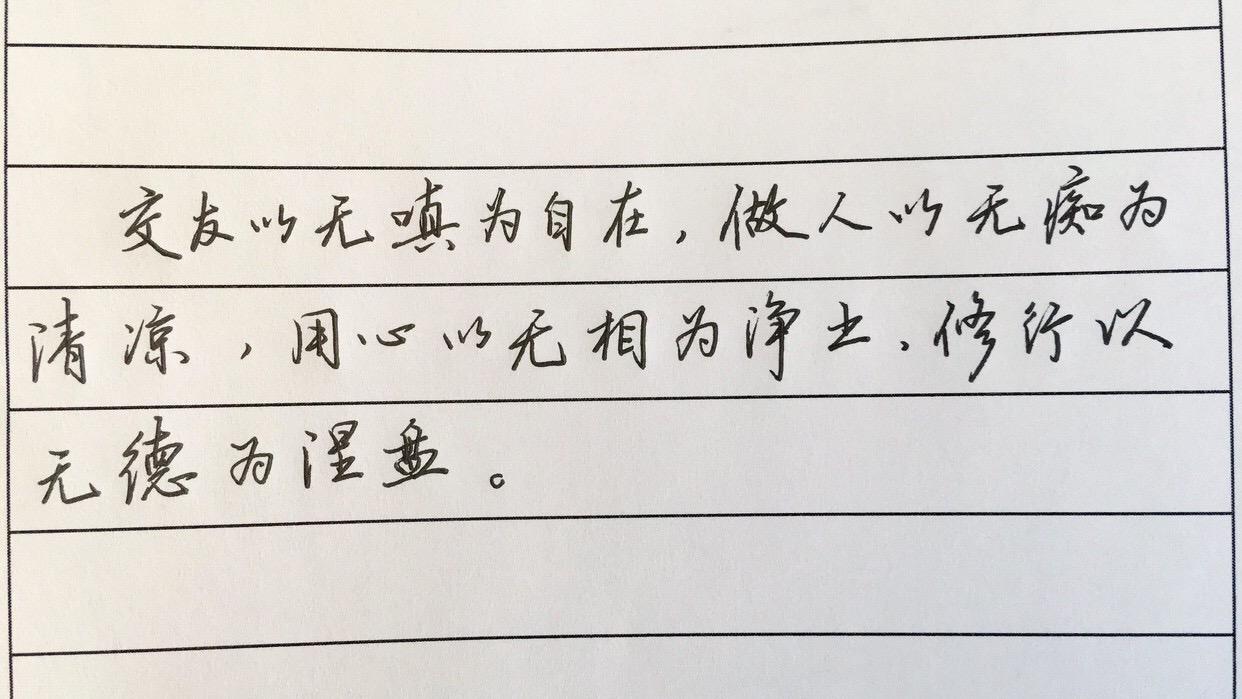 交友以无嗔为自在，做人以无痴为
清凉，用心以无相为净土，修行以
无德为涅盘。